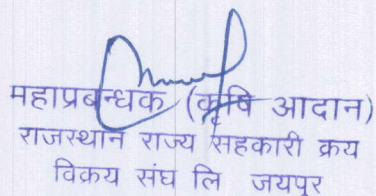 महाप्रबन्धक (कृषि आदान)
राजस्थान राज्य सहकारी क्रय
विक्रय संघ लि जयपुर